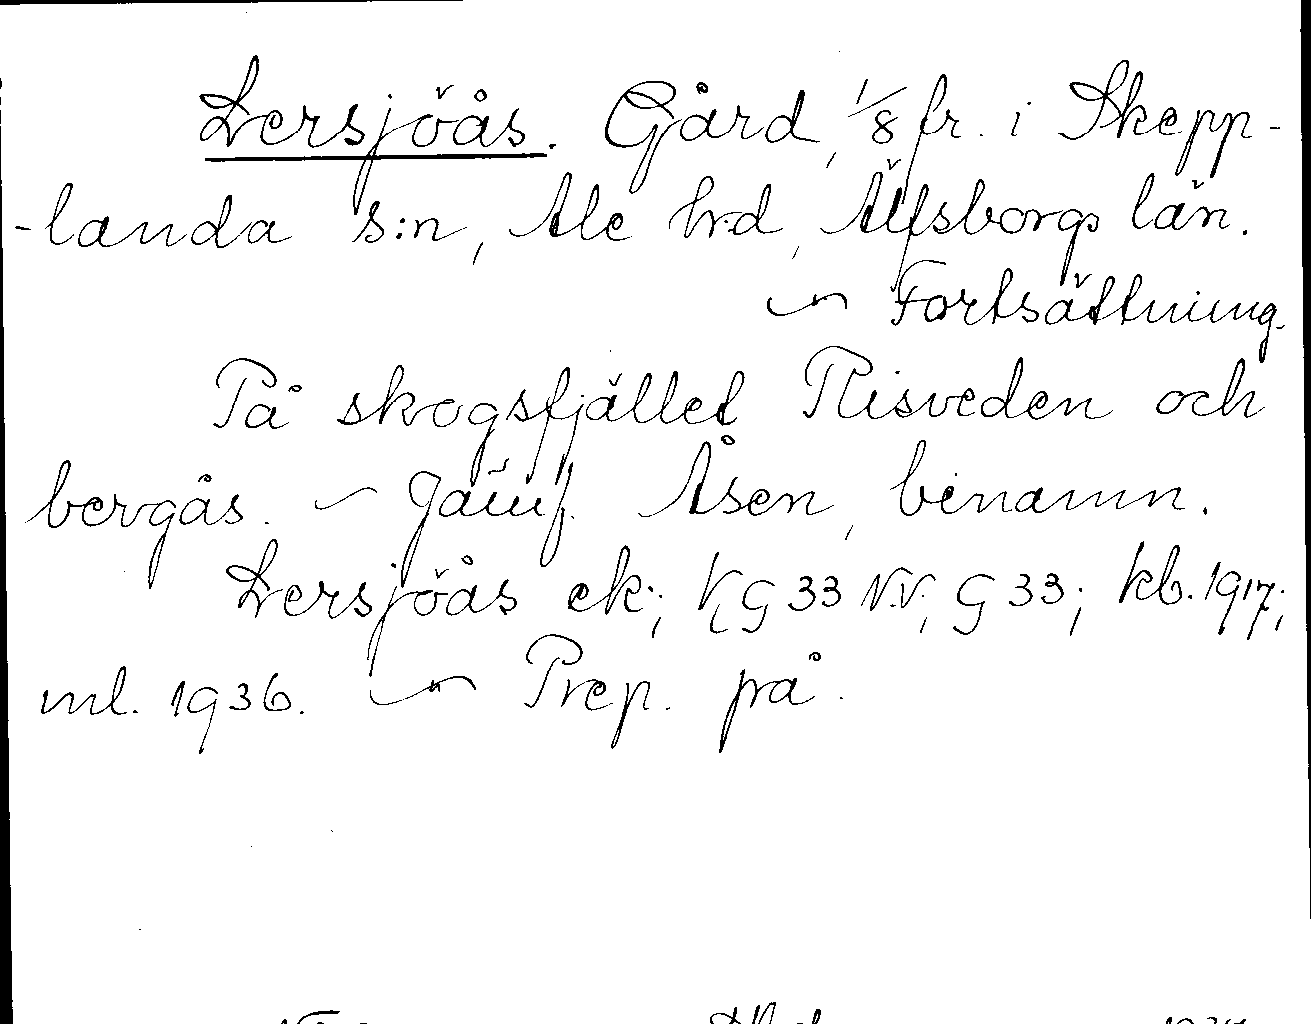 Lersjöås. Gård, 1/8 fr. i Skepp-
-landa s:n, Ale hd, Älfsborgs län.
~ Fortsättning.
På skogsfjället Risveden och
bergås. ~ Jämf. Åsen, binamn.
Lersjöås ek; V,G 33 N.V; G 33; kb. 1917;
ml. 1936. ~ Prep. på.